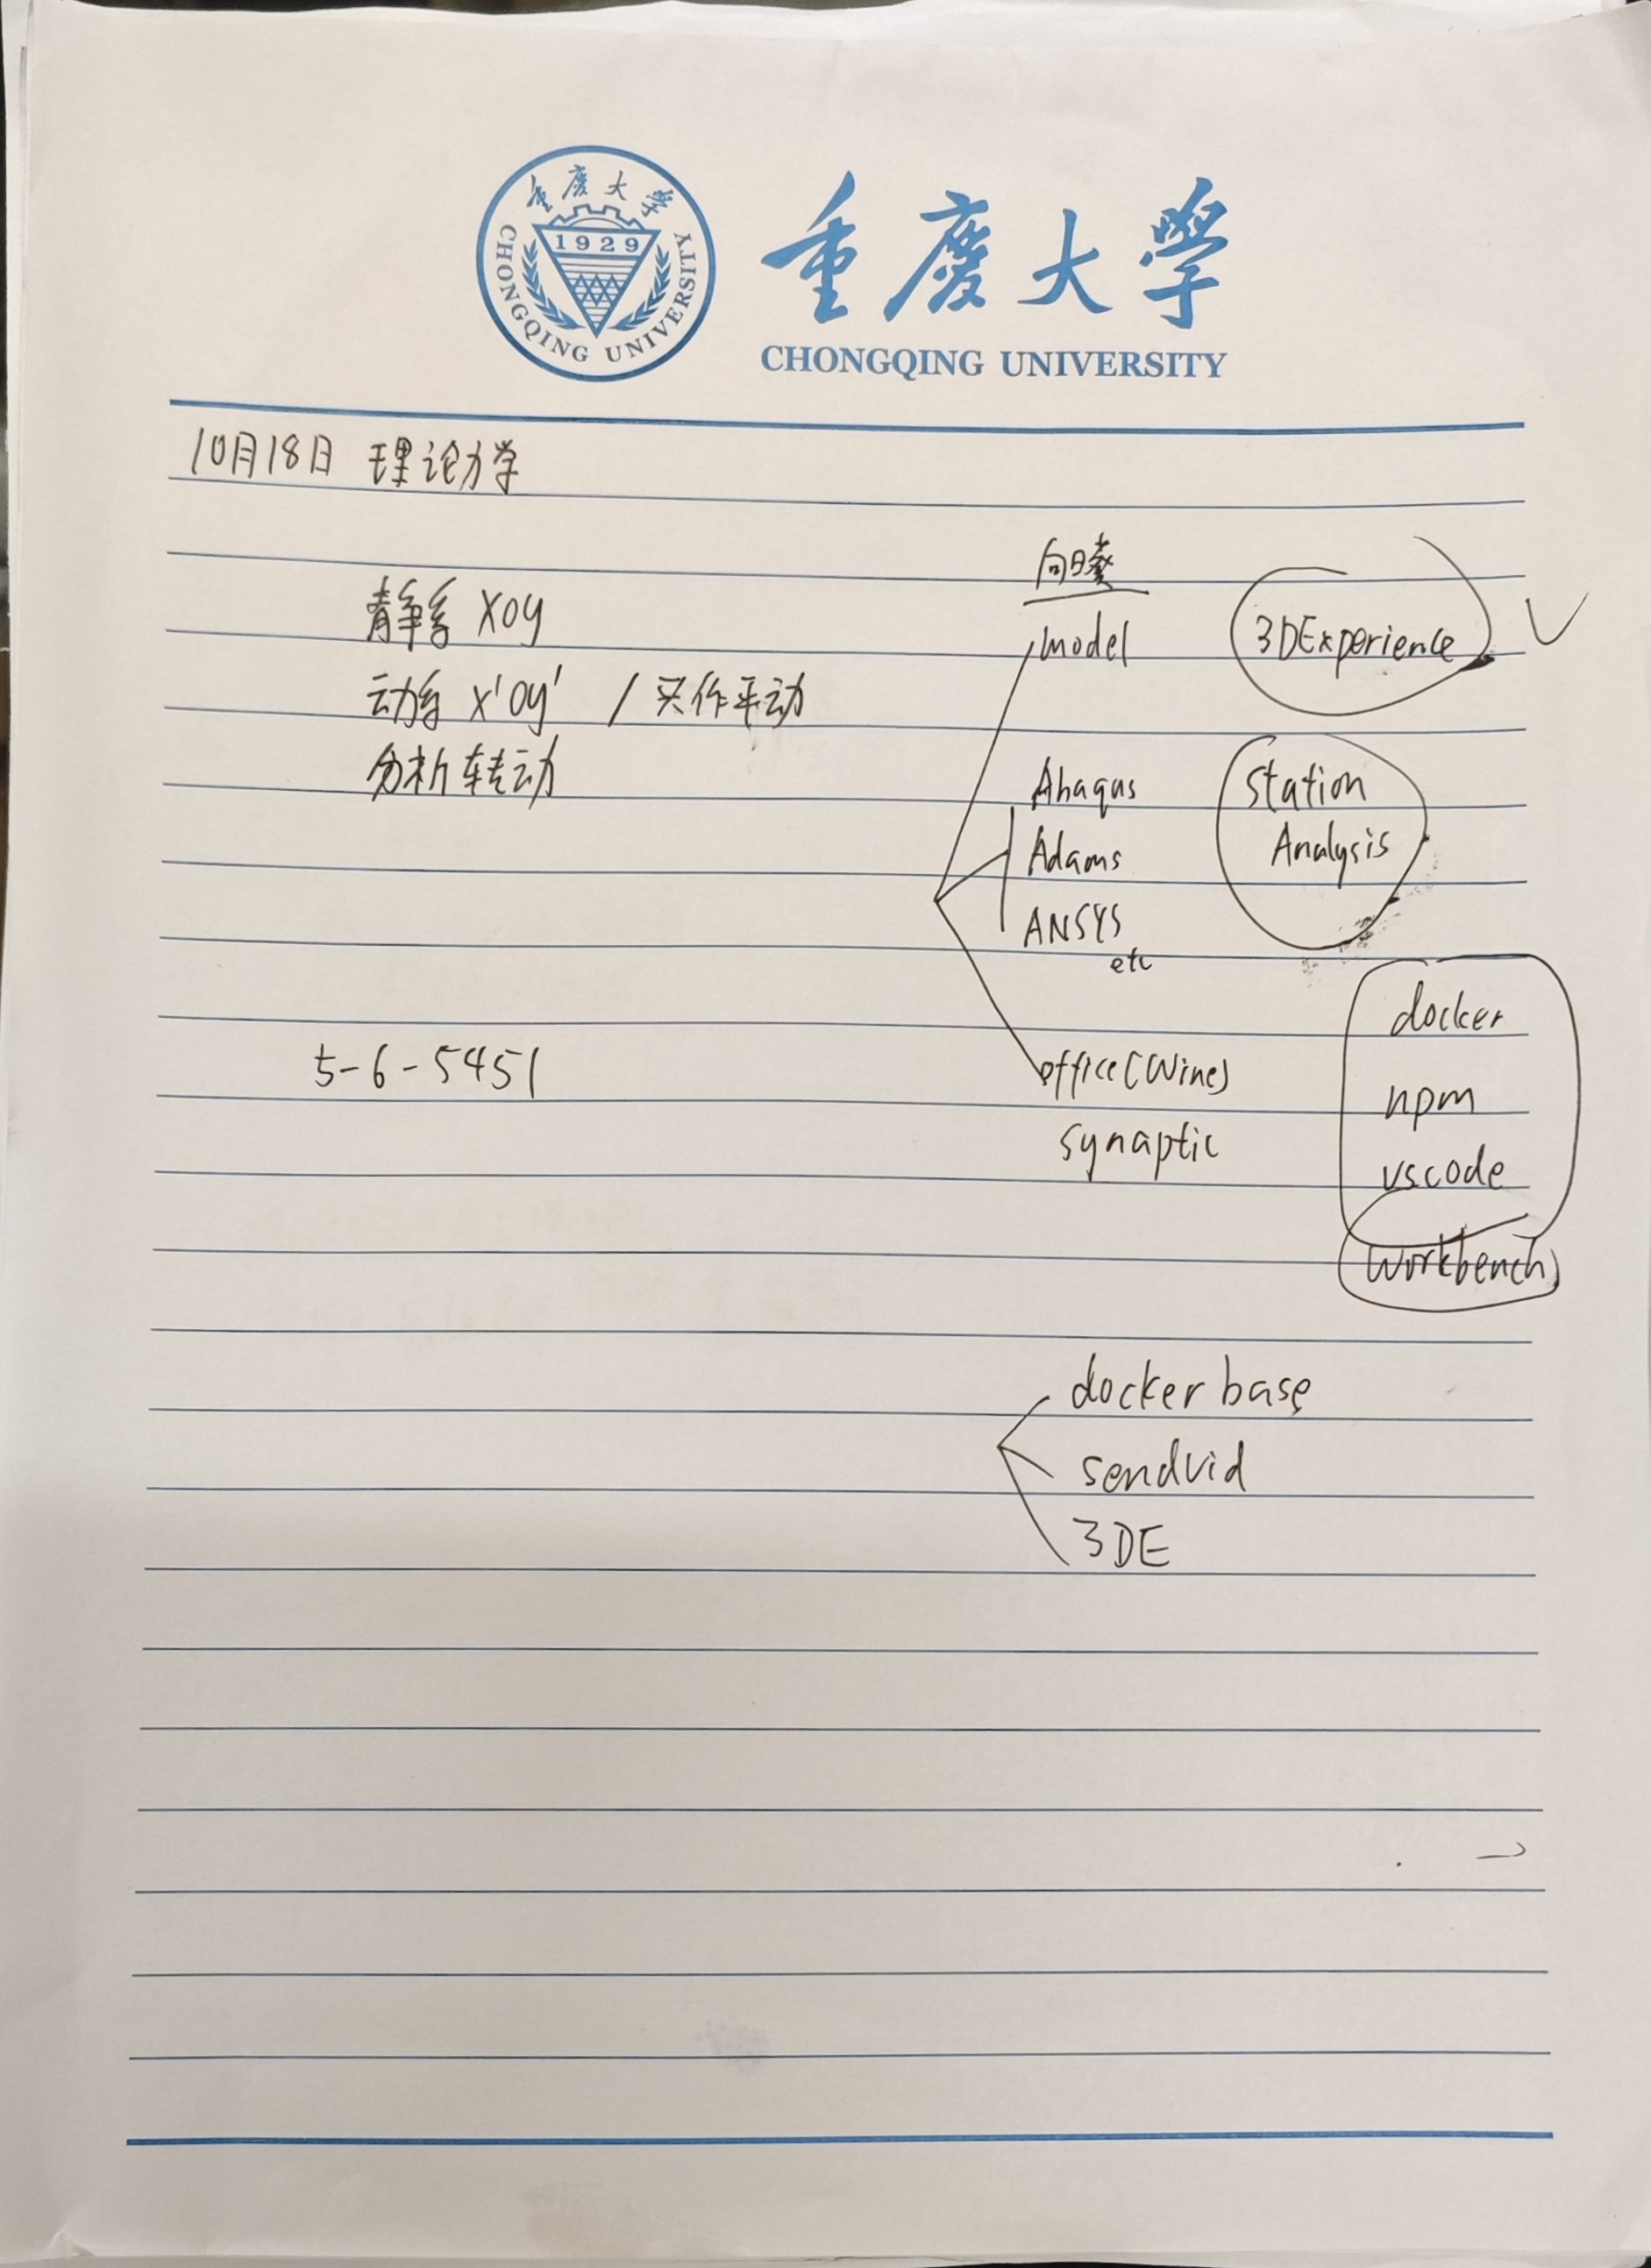 重慶大學
1929
CHONGQING UNIVERSITY
重慶大學
CHONGQING UNIVERSITY
10月18日 理论力学
静系 xoy
动系 x'oy' / 只作平动
分析转动
5-6-5451
向日葵
model
3DExperience
Abaqus
Adams
ANSYS
etc
Station
Analysis
office(Wine)
synaptic
docker
npm
vscode
Workbench
docker base
sendvid
3DE